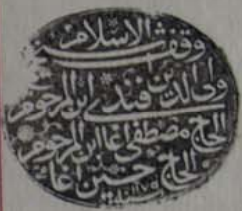 وقف شيخ الاسلام
ولى الدين افندى ابن المرحوم
الحاج مصطفى اغا ابن المرحوم
الحاج حسين اغا